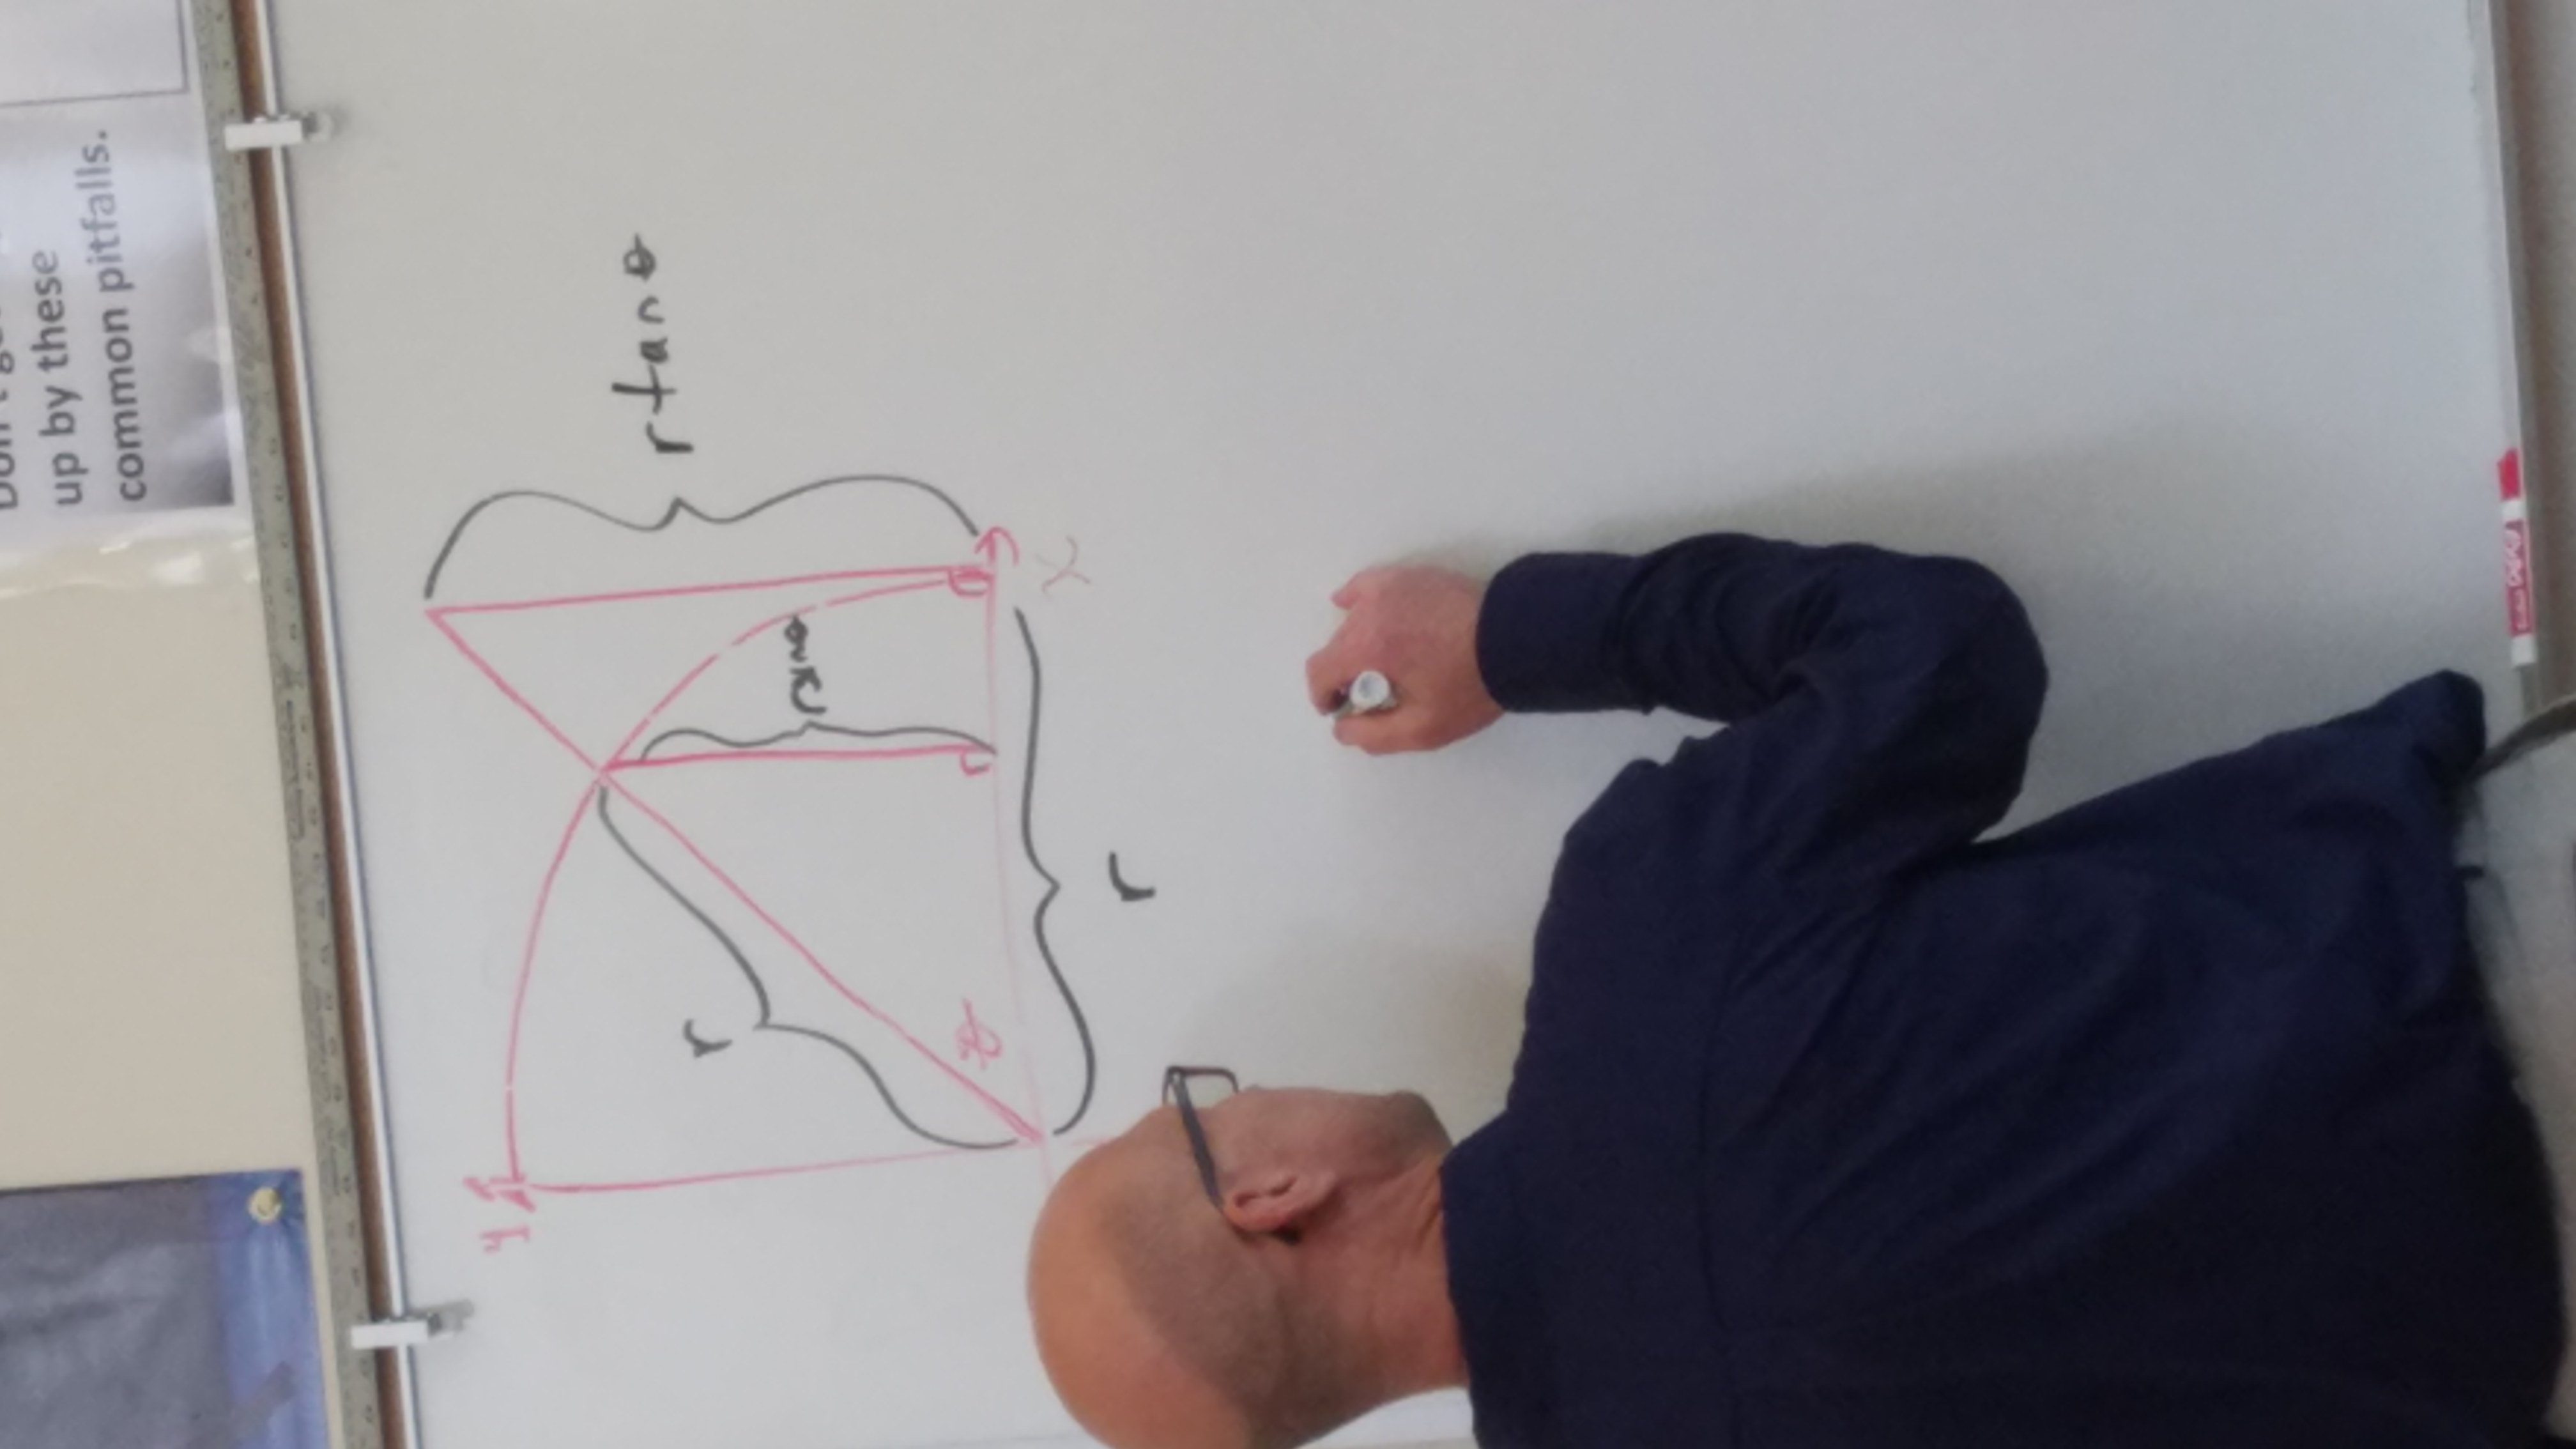 up by these
common pitfalls.
y
r
r tan θ
r sin θ
θ
x
r